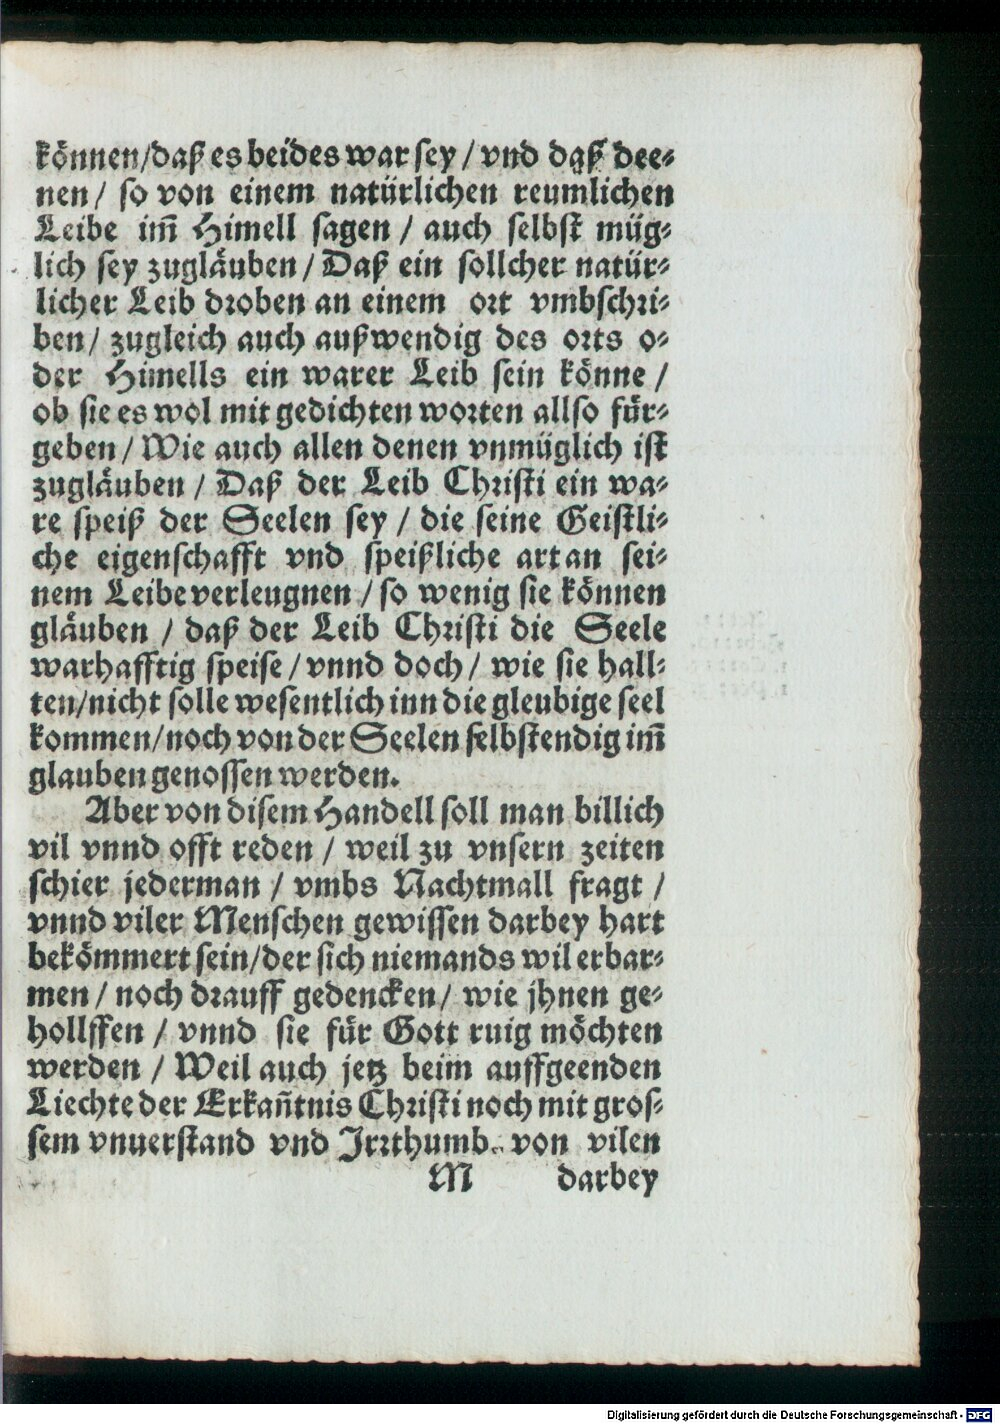 können/daß es beides war sey / vnd daß dee⸗
nen / so von einem natürlichen reumlichen
Leibe im̃ Himell sagen / auch selbst müg⸗
lich sey zugläuben / Daß ein sollcher natür⸗
licher Leib droben an einem ort vmbschri⸗
ben / zugleich auch außwendig des orts o⸗
der Himells ein warer Leib sein könne /
ob sie es wol mit gedichten worten allso für⸗
geben / Wie auch allen denen vnmüglich ist
zugläuben / Daß der Leib Christi ein wa⸗
re speiß der Seelen sey / die seine Geistli⸗
che eigenschafft vnd speißliche art an sei⸗
nem Leibe verleugnen / so wenig sie können
gläuben / daß der Leib Christi die Seele
warhafftig speise / vnnd doch / wie sie hall⸗
ten/nicht solle wesentlich inn die gleubige seel
kommen/noch von der Seelen selbstendig im̃
glauben genossen werden.
Aber von disem Handell soll man billich
vil vnnd offt reden / weil zu vnsern zeiten
schier jederman / vmbs Nachtmall fragt /
vnnd viler Menschen gewissen darbey hart
bekömmert sein/der sich niemands wil erbar⸗
men / noch drauff gedencken / wie jhnen ge⸗
hollffen / vnnd sie für Gott ruig möchten
werden / Weil auch jetz beim auffgeenden
Liechte der Erkañtnis Christi noch mit gros⸗
sem vnuerstand vnd Irrthumb. von vilen
M darbey
Digitalisierung gefördert durch die Deutsche Forschungsgemeinschaft - DFG